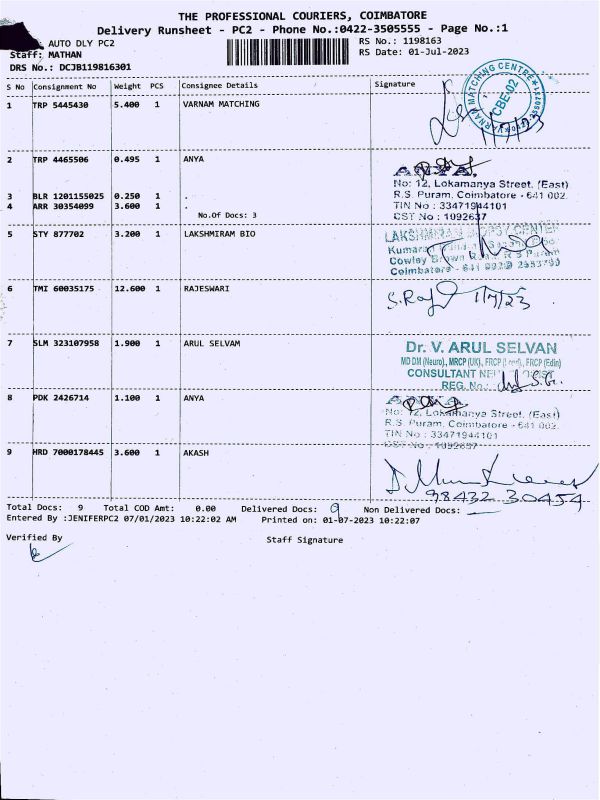 THE PROFESSIONAL COURIERS, COIMBATORE
Delivery Runsheet - PC2 - Phone No.:0422-3505555 - Page No.:1
AUTO DLY PC2
Staff: MATHAN
DRS No.: DCJB119816301
RS No.: 1198163
RS Date: 01-Jul-2023
S No Consignment No Weight PCS Consignee Details Signature
1 TRP 5445430 5.400 1 VARNAM MATCHING
VARNAM MATCHING CENTRE
CBE-02
1/7/23
2 TRP 4465506 0.495 1 ANYA
ANYA,
No: 12, Lokamanya Street, (East)
R.S. Puram, Coimbatore - 641 002.
TIN No : 33471944101
CST No : 1092637
3 BLR 1201155025 0.250 1 .
4 ARR 30354099 3.600 1 .
No.Of Docs: 3
5 STY 877702 3.200 1 LAKSHMIRAM BIO
Cowley Brown R.S Puram
Coimbatore - 641 002
6 TMI 60035175 12.600 1 RAJESWARI
1/7/23
7 SLM 323107958 1.900 1 ARUL SELVAM
Dr. V. ARUL SELVAN
MD DM (Neuro)., MRCP (UK), FRCP (Lond), FRCP (Edin)
CONSULTANT
REG. No.:
8 PDK 2426714 1.100 1 ANYA
ANYA,
No: 12, Lokamanya Street, (East)
R.S. Puram, Coimbatore - 641 002.
TIN No : 33471944101
CST No : 1092637
9 HRD 7000178445 3.600 1 AKASH
98432 30454
Total Docs: 9 Total COD Amt: 0.00 Delivered Docs: 9 Non Delivered Docs:
Entered By :JENIFERPC2 07/01/2023 10:22:02 AM Printed on: 01-07-2023 10:22:07
Verified By
Staff Signature